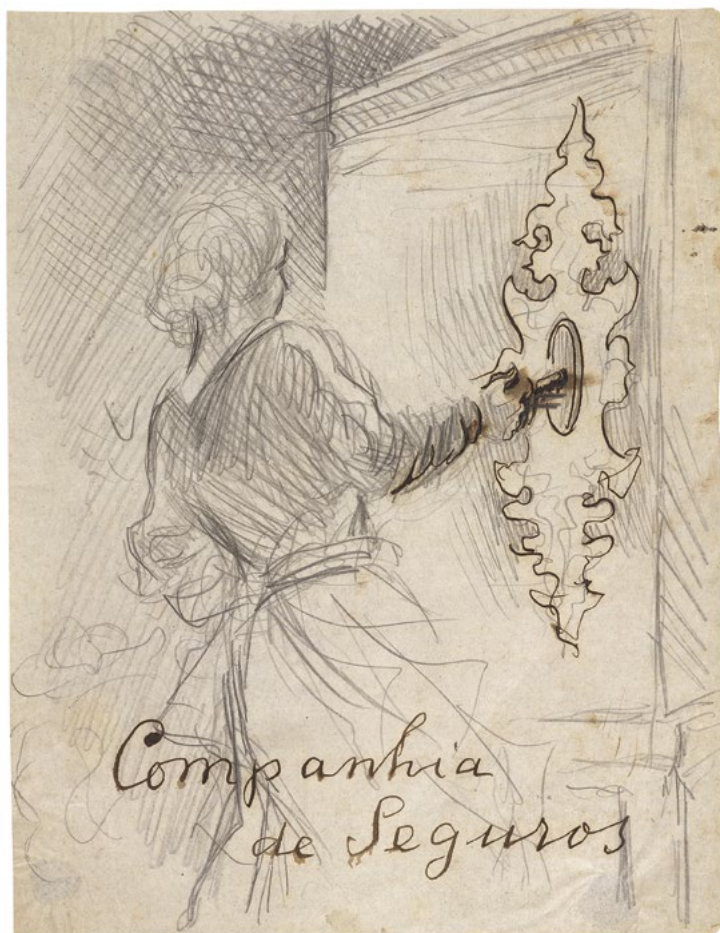 Companhia
de Seguros